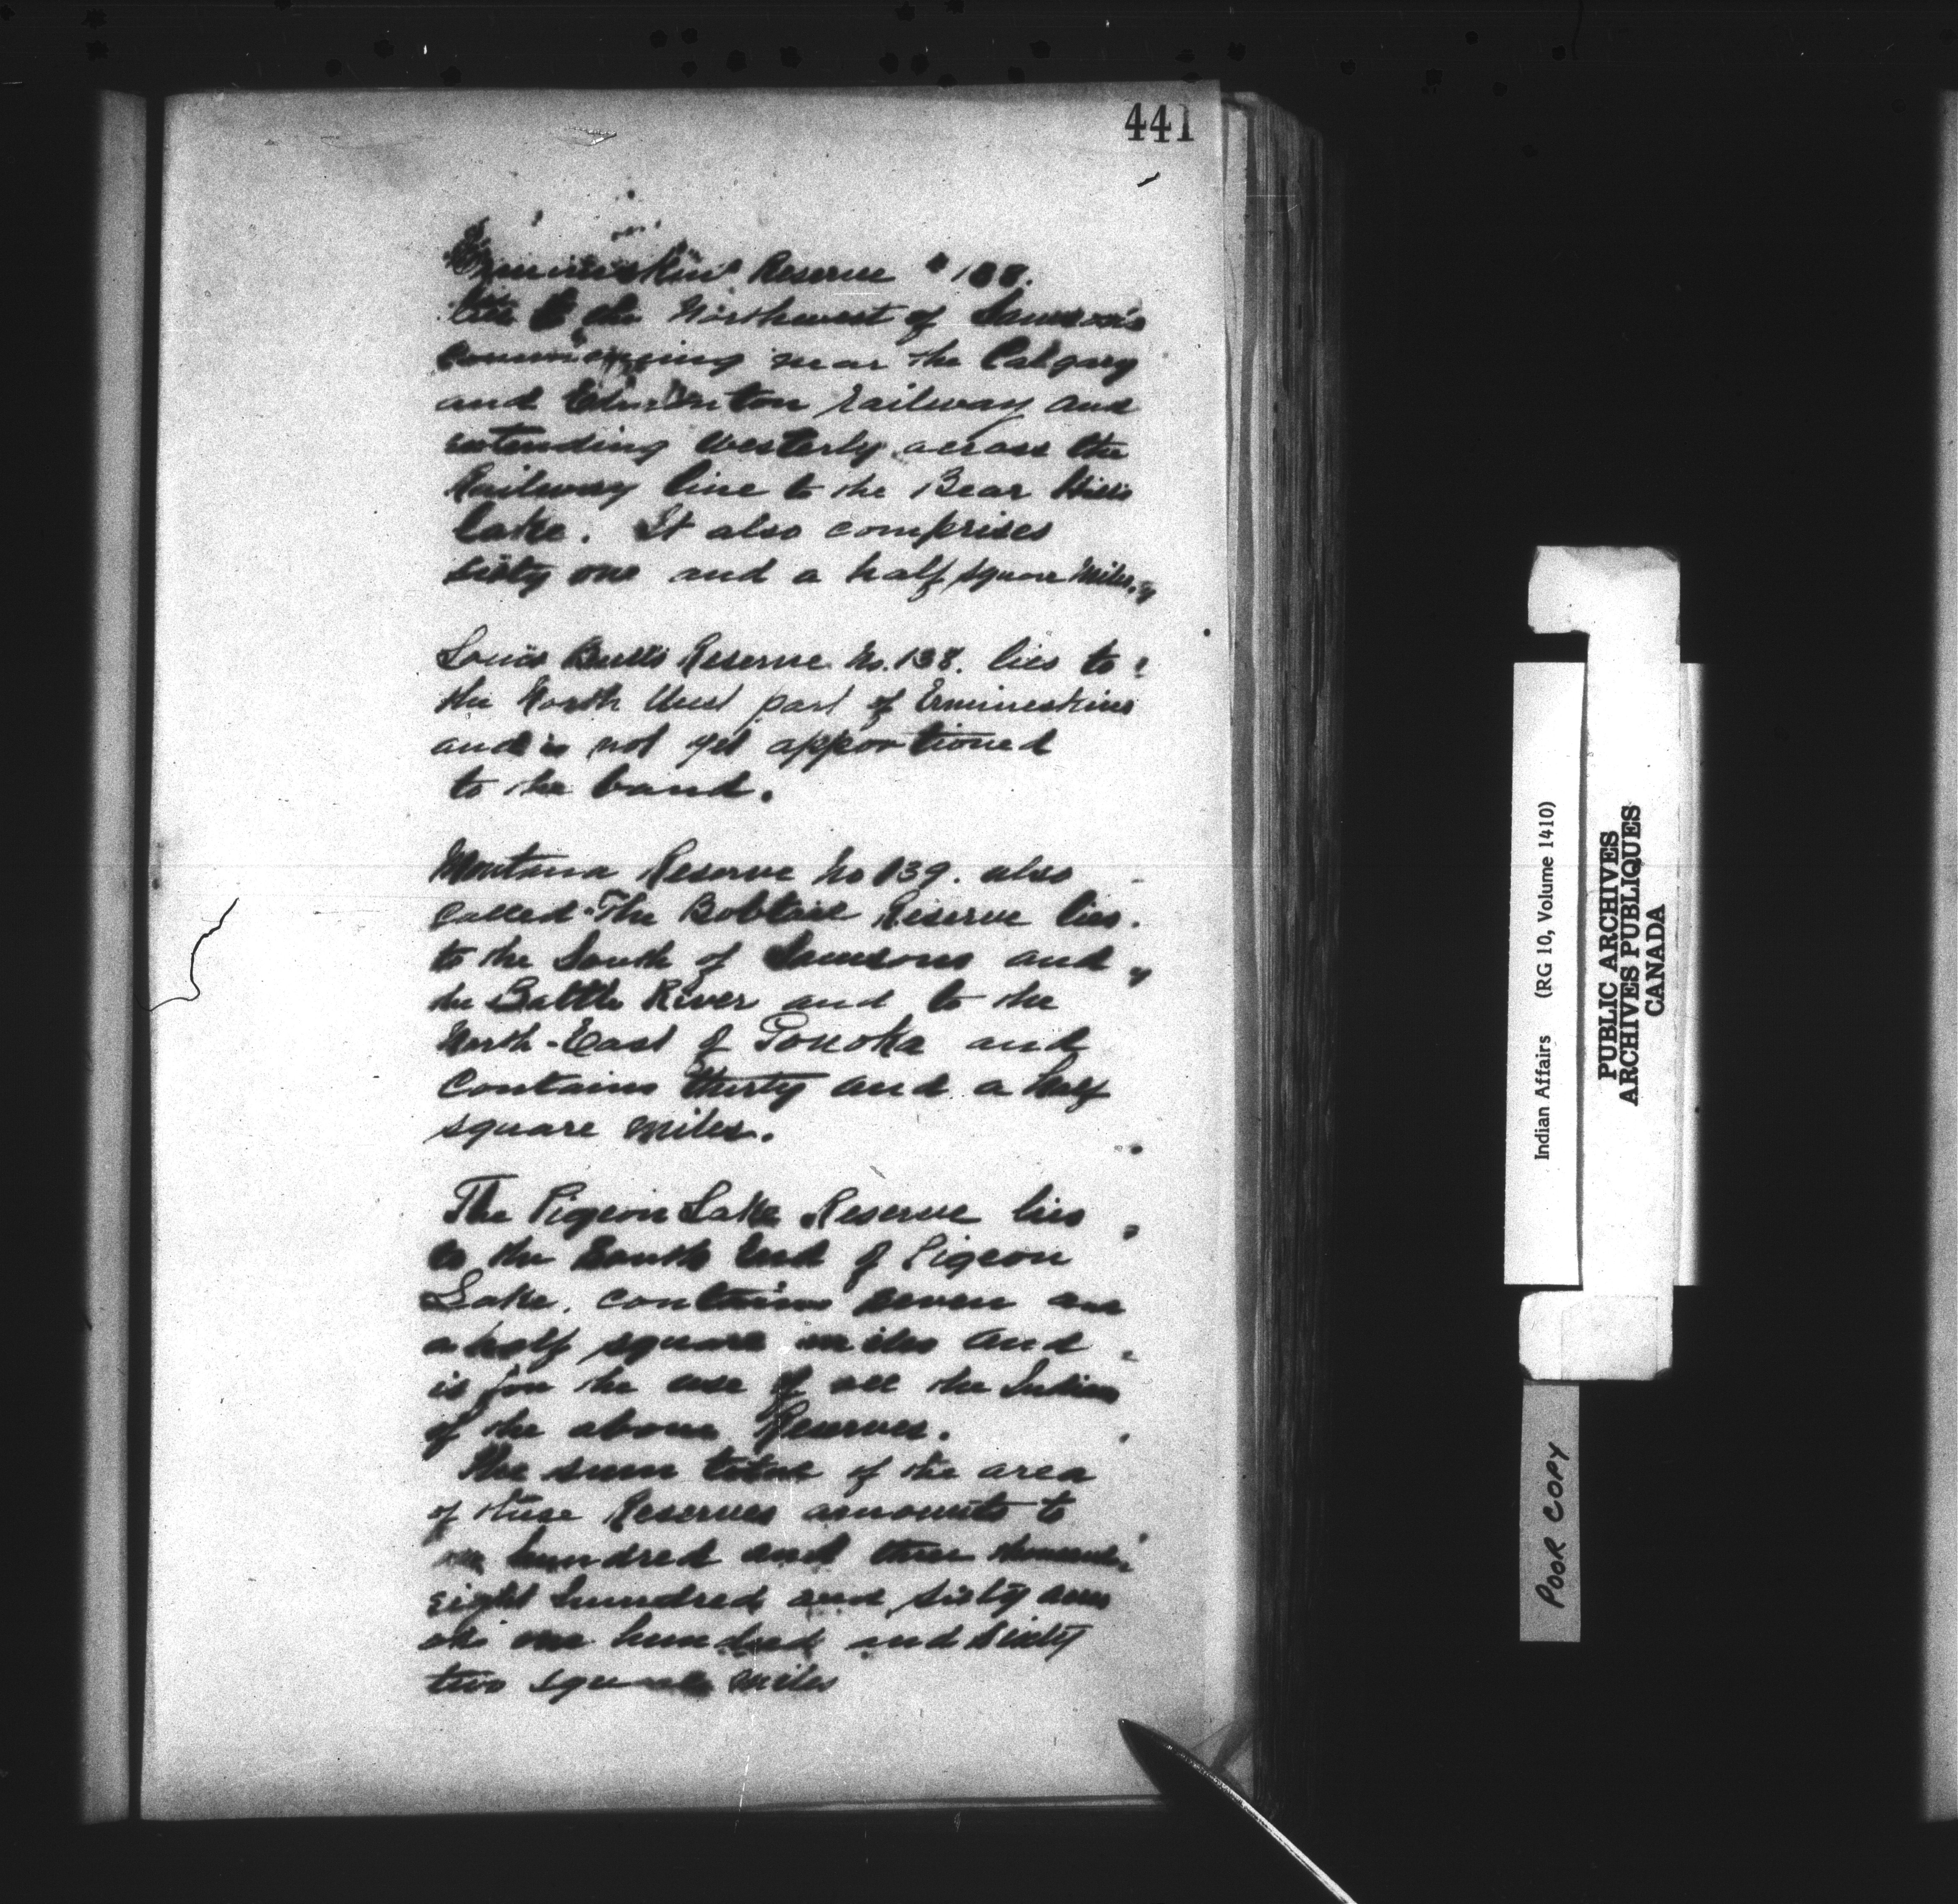 441
Ermineskin's Reserve # 138.
lies to the Northwest of Samson's
commencing near the Calgary
and Edmonton Railway and
extending Westerly across the
Railway line to the Bear Hills
Lake. It also comprises
sixty one and a half square miles.
Louis Bulls Reserve No. 138. lies to
the North West part of Ermineskins
and is not yet apportioned
to the band.
Montana Reserve No 139. also
called The Bobtail Reserve lies
to the South of Samsons and
the Battle River and to the
North-East of Ponoka and
contains thirty and a half
square miles.
The Pigeon Lake Reserve lies
to the South End of Pigeon
Lake, contains seven and
a half square miles and
is for the use of all the Indians
of the above Reserves.
The sum total of the area
of these Reserves amounts to
one hundred and three thousand
eight hundred and sixty acres
or one hundred and sixty
two square miles
Indian Affairs (RG 10, Volume 1410)
PUBLIC ARCHIVES
ARCHIVES PUBLIQUES
CANADA
POOR COPY